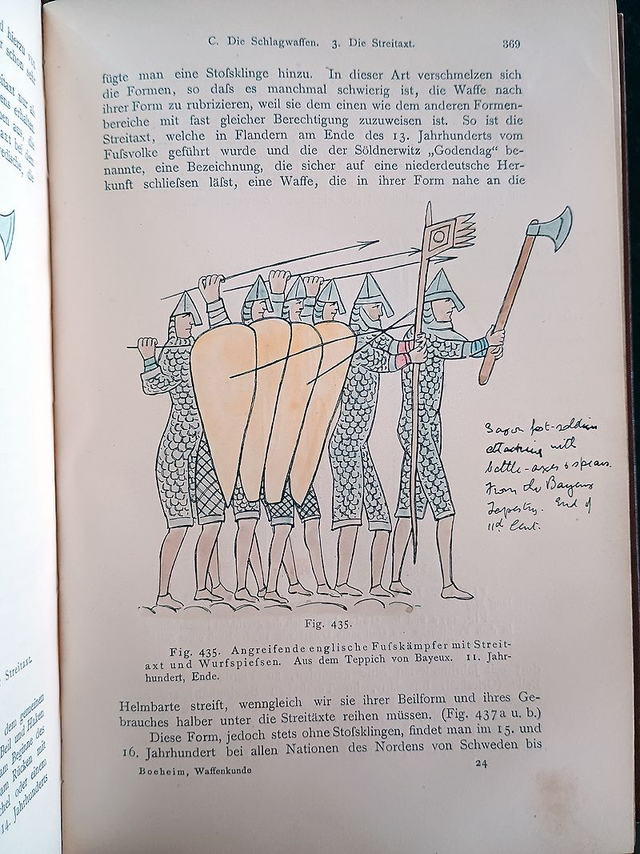 C. Die Schlagwaffen. 3. Die Streitaxt. 369
fügte man eine Stofsklinge hinzu. In dieser Art verschmelzen sich
die Formen, so dafs es manchmal schwierig ist, die Waffe nach
ihrer Form zu rubrizieren, weil sie dem einen wie dem anderen Formen-
bereiche mit fast gleicher Berechtigung zuzuweisen ist. So ist die
Streitaxt, welche in Flandern am Ende des 13. Jahrhunderts vom
Fufsvolke geführt wurde und die der Söldnerwitz „Godendag“ be-
nannte, eine Bezeichnung, die sicher auf eine niederdeutsche Her-
kunft schliefsen läfst, eine Waffe, die in ihrer Form nahe an die
Saxon foot-soldiers
attacking with
battle-axes & spears.
From the Bayeux
Tapestry. End of
11th Cent.
Fig. 435.
Fig. 435. Angreifende englische Fufskämpfer mit Streit-
axt und Wurfspiefsen. Aus dem Teppich von Bayeux. 11. Jahr-
hundert, Ende.
Helmbarte streift, wenngleich wir sie ihrer Beilform und ihres Ge-
brauches halber unter die Streitäxte reihen müssen. (Fig. 437 a u. b.)
Diese Form, jedoch stets ohne Stofsklingen, findet man im 15. und
16. Jahrhundert bei allen Nationen des Nordens von Schweden bis
Boeheim, Waffenkunde 24
Streitaxt.
dem gemeinen
Beil und Haken
am Beginne des
am Rücken mit
oder einem
14. Jahrhunderts